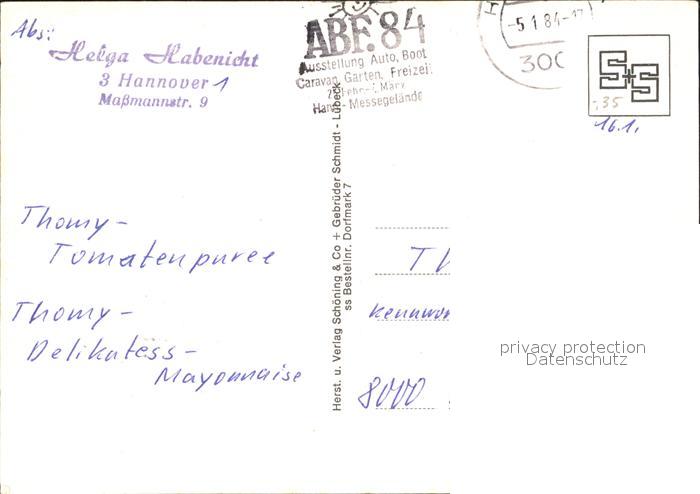 Abs:
Helga Habenicht
3 Hannover 1
Maßmannstr. 9
ABF. 84
Ausstellung Auto, Boot
Caravan, Garten, Freizeit
Messegelände
-5.1.84-17
300
S+S
-,35
16.1.
Thomy-
Tomatenpuree
Thomy-
Delikatess-
Mayonnaise
Herst. u. Verlag Schöning & Co + Gebrüder Schmidt - Lübeck
ss Bestellnr. Dorfmark 7
8000
privacy protection
Datenschutz